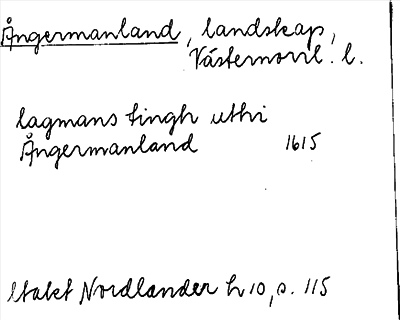 Ångermanland, landskap,
Västernorrl. l.
lagmans tingh uthi
Ångermanland 1615
Utakt Nordlander h 10, s. 115